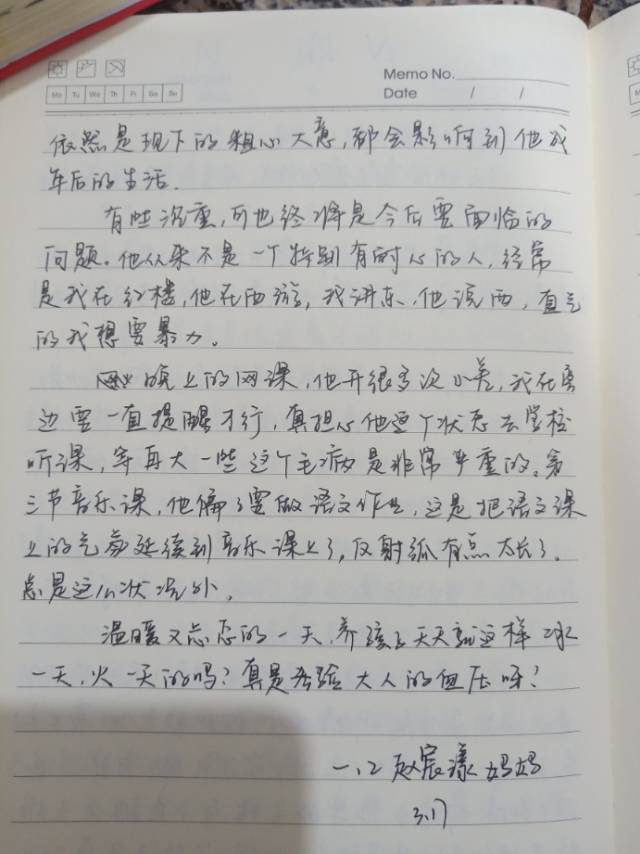 Memo No.
Mo Tu We Th Fr Sa Su
Date / /
依然是现下的粗心大意,都会影响到他成
年后的生活.
有些沉重,可也终将是今后要面临的
问题.他从来不是一个特别有耐心的人,经常
是我在红楼,他在西游,我讲东.他说西,直气
的我想要暴力。
晚上的网课,他开很多次小差,我在旁
边要一直提醒才行,真担心他这个状态去学校
听课,年再大一些这个毛病是非常严重的。第
三节音乐课,他偏了要做语文作业,这是把语文课
上的气氛延续到音乐课上了,反射弧有点太长了.
总是这么状况外。
温暖又忐忑的一天.养孩子天天就这样冰
一天,火一天的吗?真是考验大人的血压呀?
一.2 赵宸漾妈妈
3.17